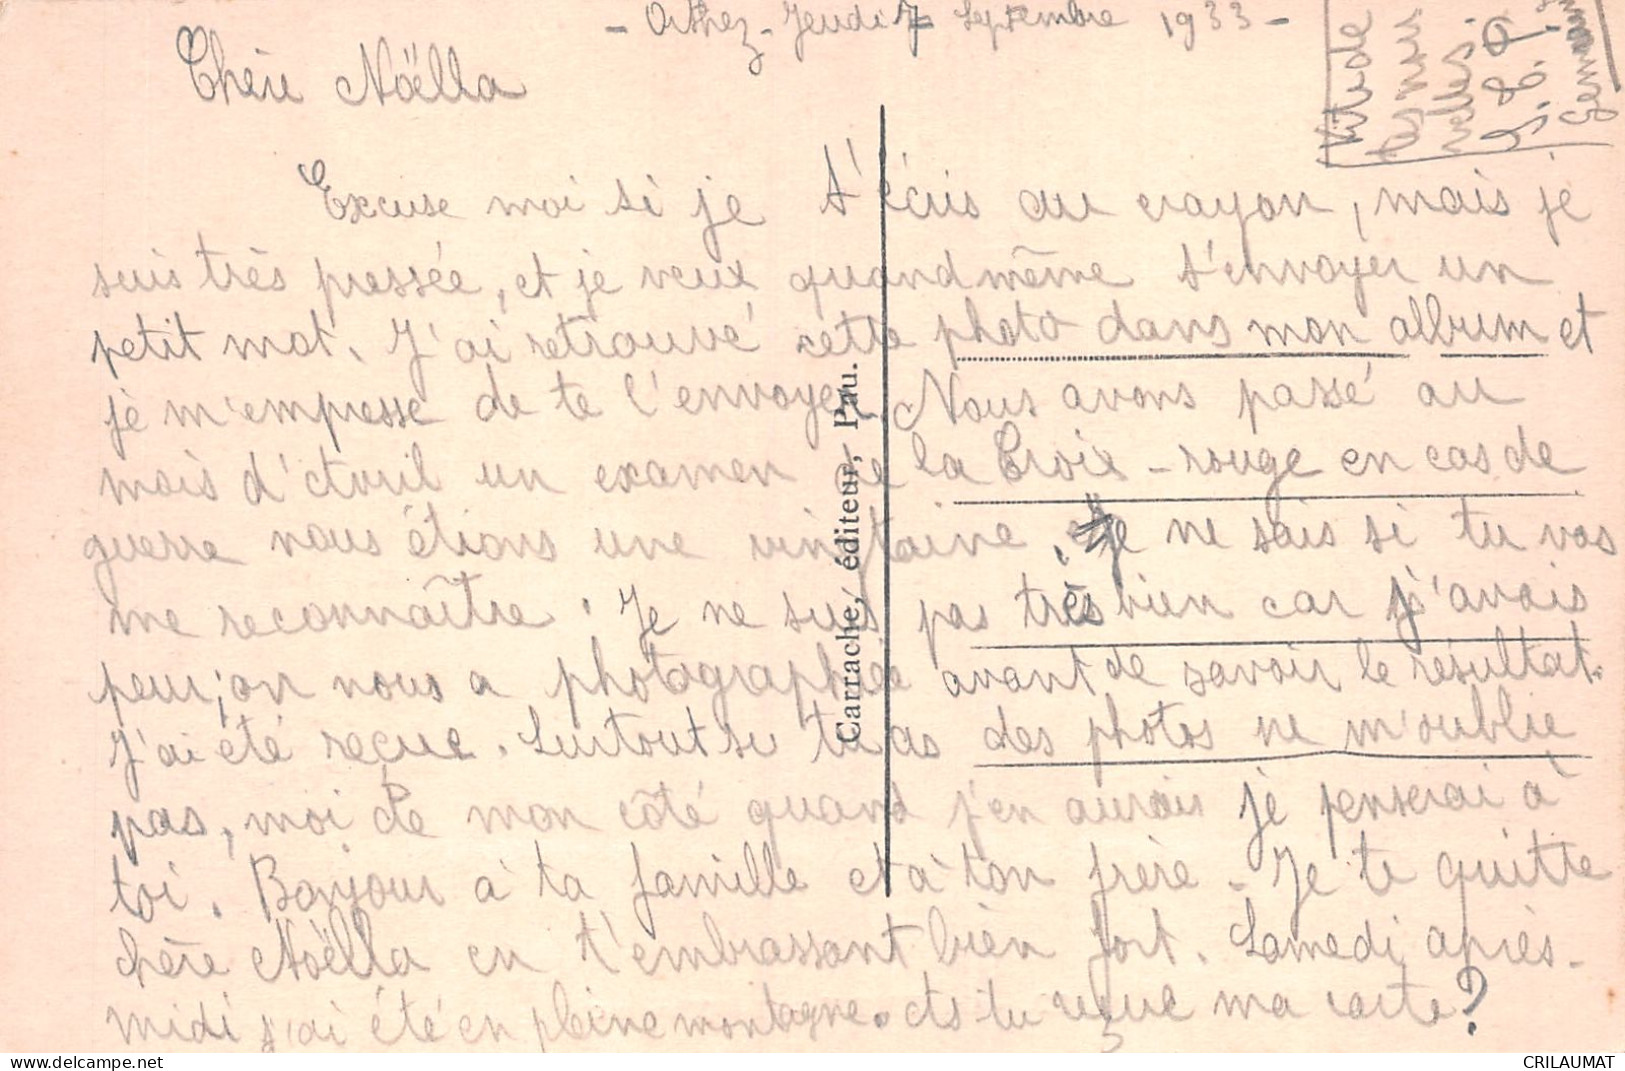 - Orthez - Jeudi 7 Septembre 1933 -
Chère Noëlla
Vite de
tes nou
velles.
S. V. P.
Excuse moi si je t'écris au crayon, mais je
suis très pressée, et je veux quand même t'envoyer un
petit mot. J'ai retrouvé cette photo dans mon album et
je m'empresse de te l'envoyer. Nous avons passé au
mois d'avril un examen de la Croix-rouge en cas de
guerre nous étions une vintaine. Je ne sais si tu vas
me reconnaître. Je ne suis pas très bien car j'avais
peur; on nous a photographiée avant de savoir le résultat.
J'ai été reçue. Surtout si tu as des photos ne m'oublie
pas, moi de mon côté quand j'en aurais je penserai à
toi. Bonjour à ta famille et à ton frère. Je te quitte
chère Noëlla en t'embrassant bien fort. Samedi après-
midi j'ai été en pleine montagne. As tu reçue ma carte?
Carrache, éditeur, Pau.
CRILAUMAT